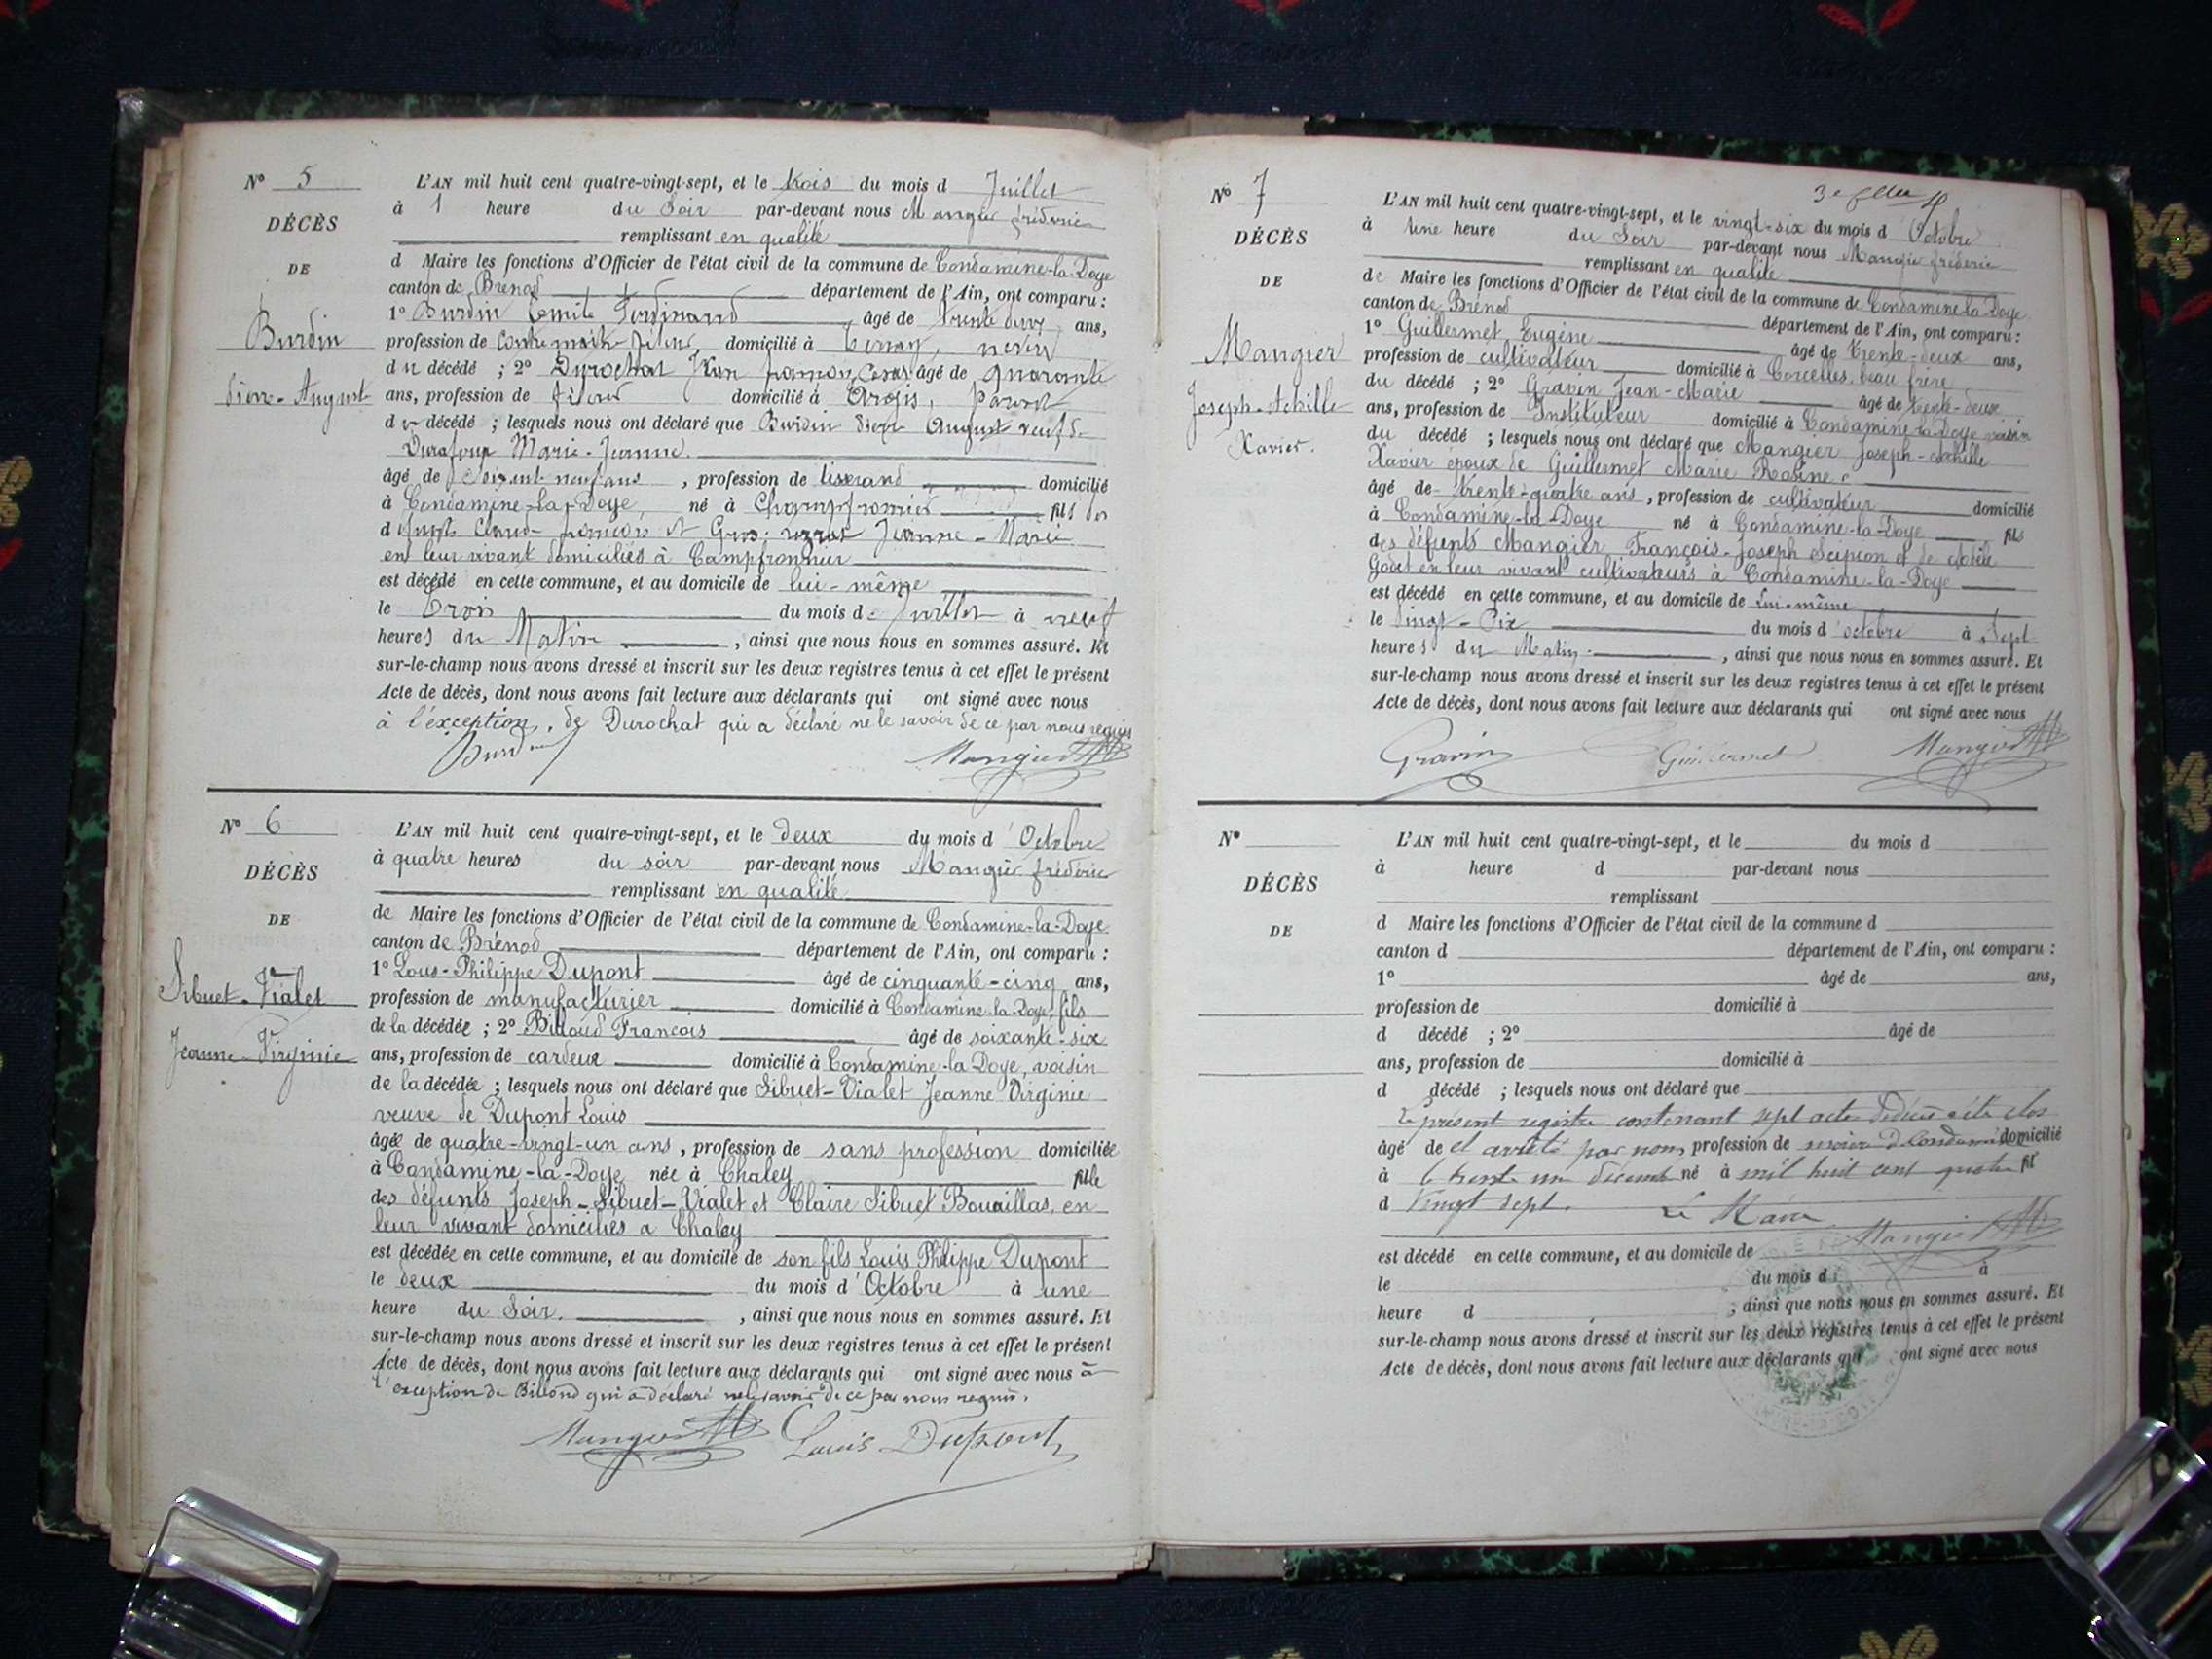 N° 5
DÉCÈS
DE
Burdin
Pierre-August
L'AN mil huit cent quatre-vingt-sept, et le trois du mois d Juillet
à 1 heure du Soir par-devant nous Mangier fréderic
remplissant en qualité
d Maire les fonctions d'Officier de l'état civil de la commune de Condamine-la-Doye
canton de Brénod département de l'Ain, ont comparu :
1° Burdin Emile Ferdinand âgé de trente deux ans,
profession de domicilié à Tenay, neveu
du décédé ; 2° Durochat Jean âgé de quarante
ans, profession de fileur domicilié à Argis, parent
du décédé ; lesquels nous ont déclaré que Burdin Pierre August veuf de
Durafour Marie-Jeanne.
âgé de soixante-neuf ans, profession de tisserand domicilié
à Condamine-la-Doye, né à Champfromier fils
d Jeanne-Marie
en leur vivant domiciliés à Campfronnier
est décédé en cette commune, et au domicile de lui-même
le Trois du mois de Juillet à neuf
heures du Matin, ainsi que nous nous en sommes assuré. Et
sur-le-champ nous avons dressé et inscrit sur les deux registres tenus à cet effet le présent
Acte de décès, dont nous avons fait lecture aux déclarants qui ont signé avec nous
à l'exception, de Durochat qui a déclaré ne le savoir de ce par nous requis
Burdin Mangier
N° 6
DÉCÈS
DE
Sibuet-Vialet
Jeanne-Virginie
L'AN mil huit cent quatre-vingt-sept, et le deux du mois d'Octobre
à quatre heures du soir par-devant nous Mangier fréderic
remplissant en qualité
de Maire les fonctions d'Officier de l'état civil de la commune de Condamine-la-Doye
canton de Brénod département de l'Ain, ont comparu :
1° Lous-Philippe Dupont âgé de cinquante-cinq ans,
profession de manufacturier domicilié à Condamine-la-Doye, fils
de la décédée ; 2° Billoud François âgé de soixante-six
ans, profession de cardeur domicilié à Condamine-la Doye, voisin
de la décédée ; lesquels nous ont déclaré que Sibuet-Vialet Jeanne Virginie
veuve de Dupont Louis
âgée de quatre-vingt-un ans, profession de sans profession domiciliée
à Condamine-la-Doye née à Chaley fille
des défunts Joseph-Sibuet-Vialet et Claire Sibuet Bouaillas, en
leur vivant domiciliés a Chaley
est décédée en cette commune, et au domicile de son fils Louis Philippe Dupont
le deux du mois d'Octobre à une
heure du Soir. , ainsi que nous nous en sommes assuré. Et
sur-le-champ nous avons dressé et inscrit sur les deux registres tenus à cet effet le présent
Acte de décès, dont nous avons fait lecture aux déclarants qui ont signé avec nous à
l'exception de Billoud qui a déclaré ne le savoir de ce par nous requis.
Mangier Louis Dupont
N° 7
DÉCÈS
DE
Mangier
Joseph-Achille
Xavier.
L'AN mil huit cent quatre-vingt-sept, et le vingt-six du mois d Octobre
à une heure du Soir par-devant nous Mangier fréderic
remplissant en qualité
de Maire les fonctions d'Officier de l'état civil de la commune de Condamine-la-Doye
canton de Brénod département de l'Ain, ont comparu :
1° Guillermet Eugène âgé de trente-deux ans,
profession de cultivateur domicilié à Corcelles, beau frère
du décédé ; 2° Gravin Jean-Marie âgé de trente-deux
ans, profession de Instituteur domicilié à Condamine-la-Doye voisin
du décédé ; lesquels nous ont déclaré que Mangier Joseph-Achille
Xavier époux de Guillermet Marie Rosine
âgé de trente-quatre ans, profession de cultivateur domicilié
à Condamine-la-Doye né à Condamine-la-Doye fils
des défunts Mangier François-Joseph Scipion et de
Godet en leur vivant cultivateurs à Condamine-la-Doye
est décédé en cette commune, et au domicile de Lui-même
le Vingt-Six du mois d'octobre à Sept
heures du Matin. , ainsi que nous nous en sommes assuré. Et
sur-le-champ nous avons dressé et inscrit sur les deux registres tenus à cet effet le présent
Acte de décès, dont nous avons fait lecture aux déclarants qui ont signé avec nous
Gravin Guillermet Mangier
N°
DÉCÈS
DE
L'AN mil huit cent quatre-vingt-sept, et le du mois d
à heure d par-devant nous
remplissant
d Maire les fonctions d'Officier de l'état civil de la commune d
canton d département de l'Ain, ont comparu :
1° âgé de ans,
profession de domicilié à
d décédé ; 2° âgé de
ans, profession de domicilié à
d décédé ; lesquels nous ont déclaré que
Le présent registre contenant sept actes de décès a été clos
âgé de et arrêté par nous profession de maire de Condamine domicilié
à le trente un décembre né à mil huit cent quatre fil
d Vingt sept. Le Maire
Mangier
est décédé en cette commune, et au domicile de
le du mois d à
heure d ; ainsi que nous nous en sommes assuré. Et
sur-le-champ nous avons dressé et inscrit sur les deux registres tenus à cet effet le présent
Acte de décès, dont nous avons fait lecture aux déclarants qui ont signé avec nous